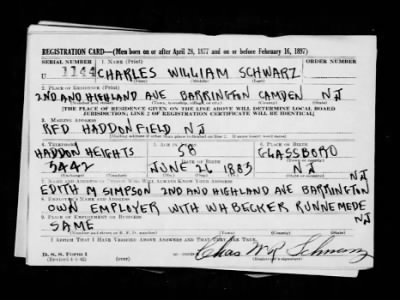 REGISTRATION CARD—(Men born on or after April 28, 1877 and on or before February 16, 1897)
SERIAL NUMBER 1. NAME (Print) ORDER NUMBER
U 1144 CHARLES WILLIAM SCHWARZ
2. PLACE OF RESIDENCE (Print)
2ND AND HIGHLAND AVE BARRINGTON CAMDEN NJ
[THE PLACE OF RESIDENCE GIVEN ON THE LINE ABOVE WILL DETERMINE LOCAL BOARD
JURISDICTION; LINE 2 OF REGISTRATION CERTIFICATE WILL BE IDENTICAL]
3. MAILING ADDRESS
RFD HADDONFIELD NJ
4. TELEPHONE 6. PLACE OF BIRTH
HADDON HEIGHTS 58 GLASSBORO
5442 JUNE 1883 NJ
EDITH M SIMPSON 2ND AND HIGHLAND AVE BARRINGTON
NJ
OWN EMPLOYER WITH WH BECKER RUNNEMEDE
NJ
SAME
I AFFIRM THAT I HAVE VERIFIED ABOVE ANSWERS AND THAT THEY ARE TRUE.
D. S. S. Form 1
Chas Wm Schwarz